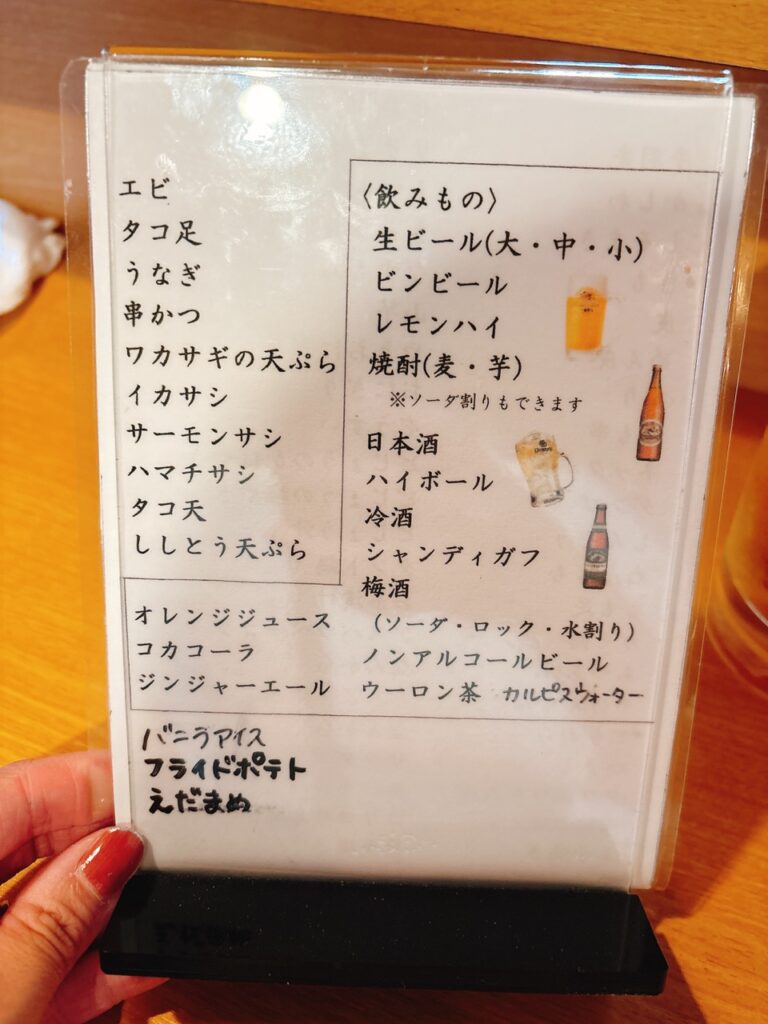 エビ
タコ足
うなぎ
串かつ
ワカサギの天ぷら
イカサシ
サーモンサシ
ハマチサシ
タコ天
ししとう天ぷら
〈飲みもの〉
生ビール(大・中・小)
ビンビール
レモンハイ
焼酎(麦・芋)
※ソーダ割りもできます
日本酒
ハイボール
冷酒
シャンディガフ
梅酒
(ソーダ・ロック・水割り)
ノンアルコールビール
ウーロン茶 カルピスウォーター
オレンジジュース
コカコーラ
ジンジャーエール
バニラアイス
フライドポテト
えだまめ